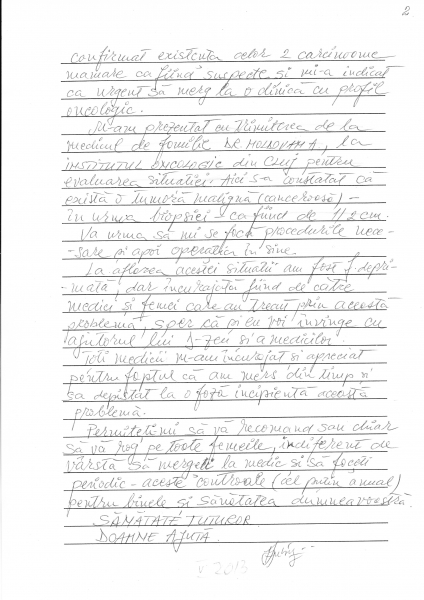 2
confirmat existenta celor 2 carcinoame
mamare ca fiind suspecte și mi-a indicat
ca urgent să merg la o clinică cu profil
oncologic.
M-am prezentat cu trimiterea de la
medicul de familie DR. MOLDOVAN A, la
INSTITUTUL ONCOLOGIC din Cluj pentru
evaluarea situatiei. Aici s-a constatat că
există o tumoră malignă (canceroasă) -
în urma biopsiei - ca fiind de 1/2 cm.
Va urma să mi se facă procedurile nece-
sare și apoi operatia în sine.
La aflarea acestei situatii am fost f. depri-
mată, dar încurajată fiind de către
medici și femei care au trecut prin această
problemă, sper că și eu voi învinge cu
ajutorul lui D-zeu si a medicilor.
Toti medicii m-au încurajat si apreciat
pentru faptul că am mers din timp si
sa depistat la o fază incipientă această
problemă.
Permiteti-mi să vă recomand sau chiar
să vă rog pe toate femeile, indiferent de
vârstă să mergeti la medic si să faceti
periodic - aceste controale (cel putin anual)
pentru binele si sănătatea dumneavoastră.
SĂNĂTATE TUTUROR.
DOAMNE AJUTĂ.
V 2013